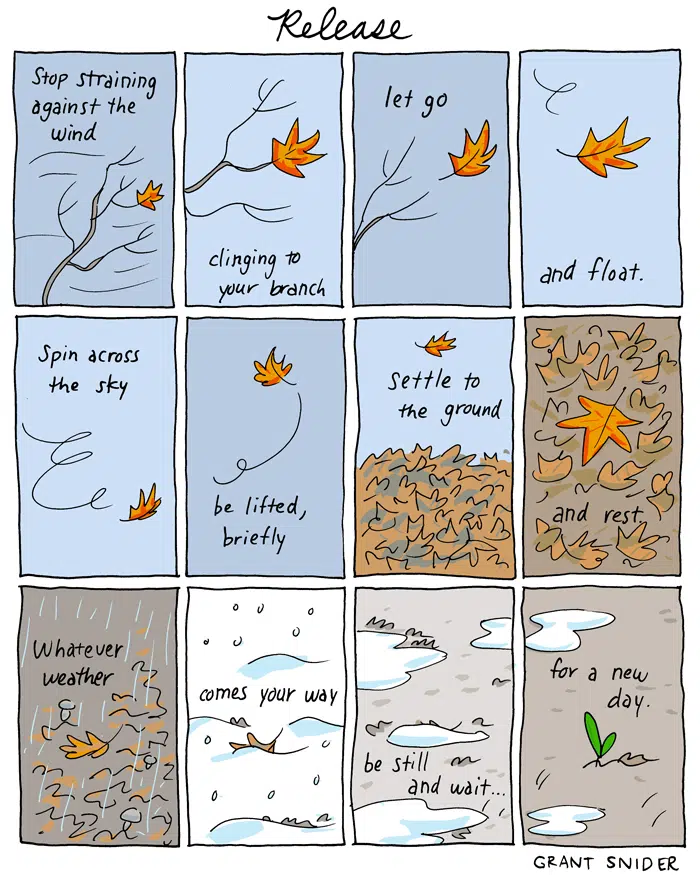 Release
Stop straining
against the
wind
clinging to
your branch
let go
and float.
Spin across
the sky
be lifted,
briefly
Settle to
the ground
and rest.
Whatever
weather
comes your way
be still
and wait...
for a new
day.
GRANT SNIDER